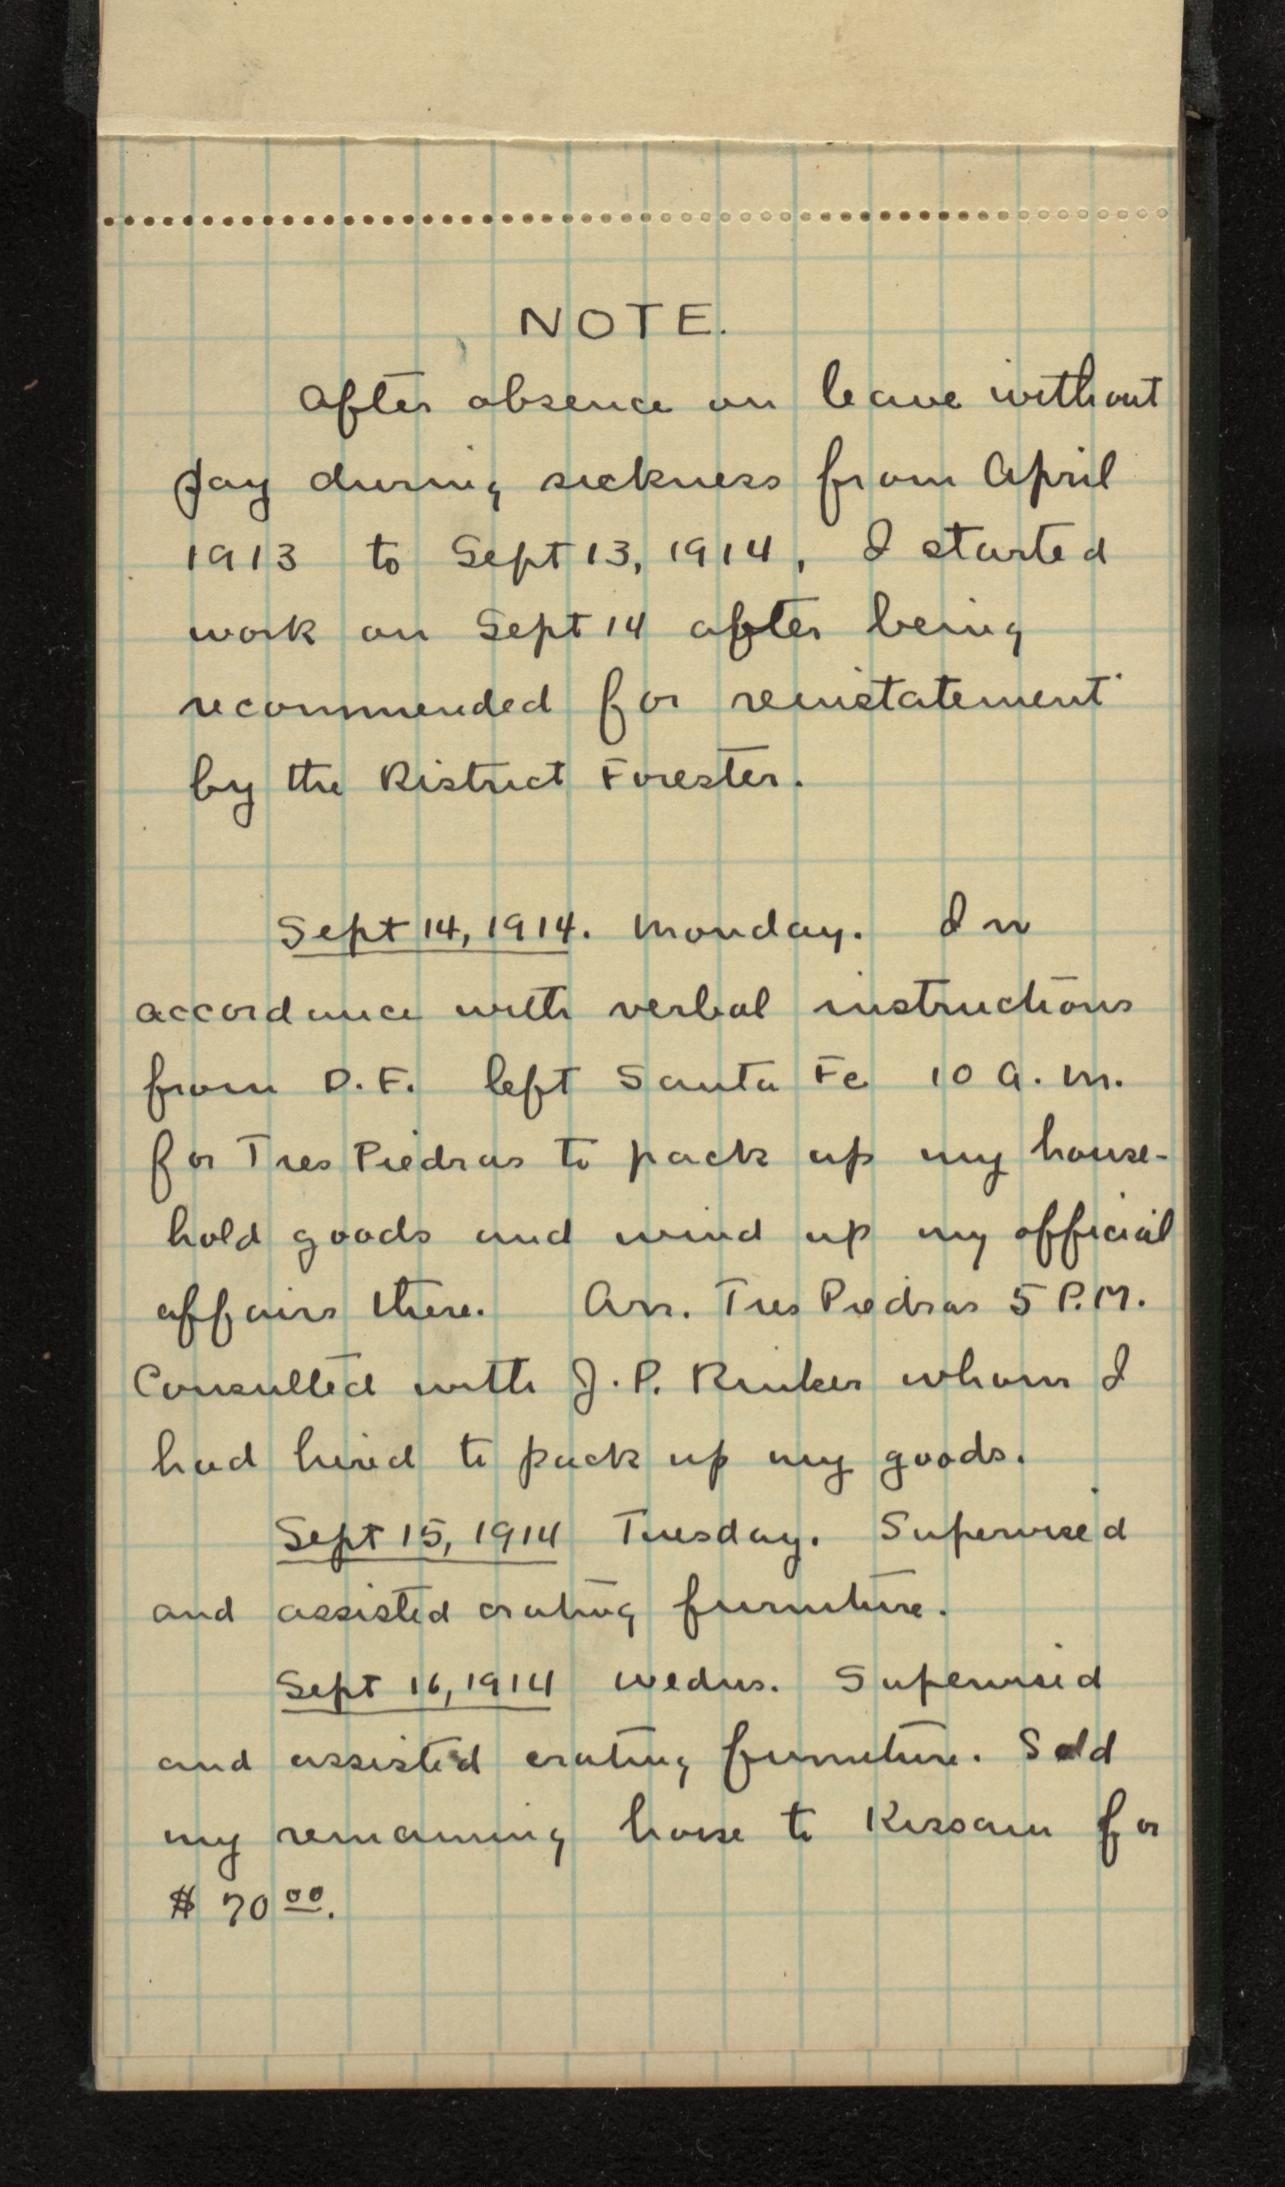 NOTE.
After absence on leave without
pay during sickness from April
1913 to Sept 13, 1914, I started
work on Sept 14 after being
recommended for reinstatement
by the District Forester.
Sept 14, 1914. Monday. In
accordance with verbal instructions
from D.F. left Santa Fe 10 A.M.
for Tres Piedras to pack up my house-
hold goods and wind up my official
affairs there. Arr. Tres Piedras 5 P.M.
Consulted with J.P. Rinker whom I
had hired to pack up my goods.
Sept 15, 1914 Tuesday. Supervised
and assisted crating furniture.
Sept 16, 1914 Wednes. Supervised
and assisted crating furniture. Sold
my remaining horse to Kissam for
$70.00.